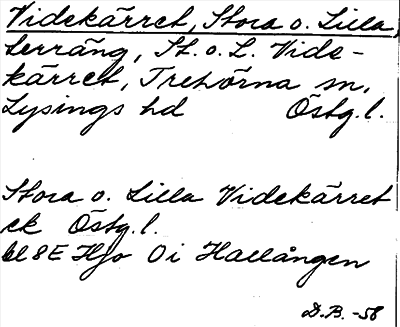 Videkärret, Stora o. Lilla,
terräng, St. o. L. Vide-
kärret, Trehörna sn,
Lysings hd Östg.l.
Stora o. Lilla Videkärret
ek Östg.l.
bl 8E Hjo 0i Hallången
D.B. -58